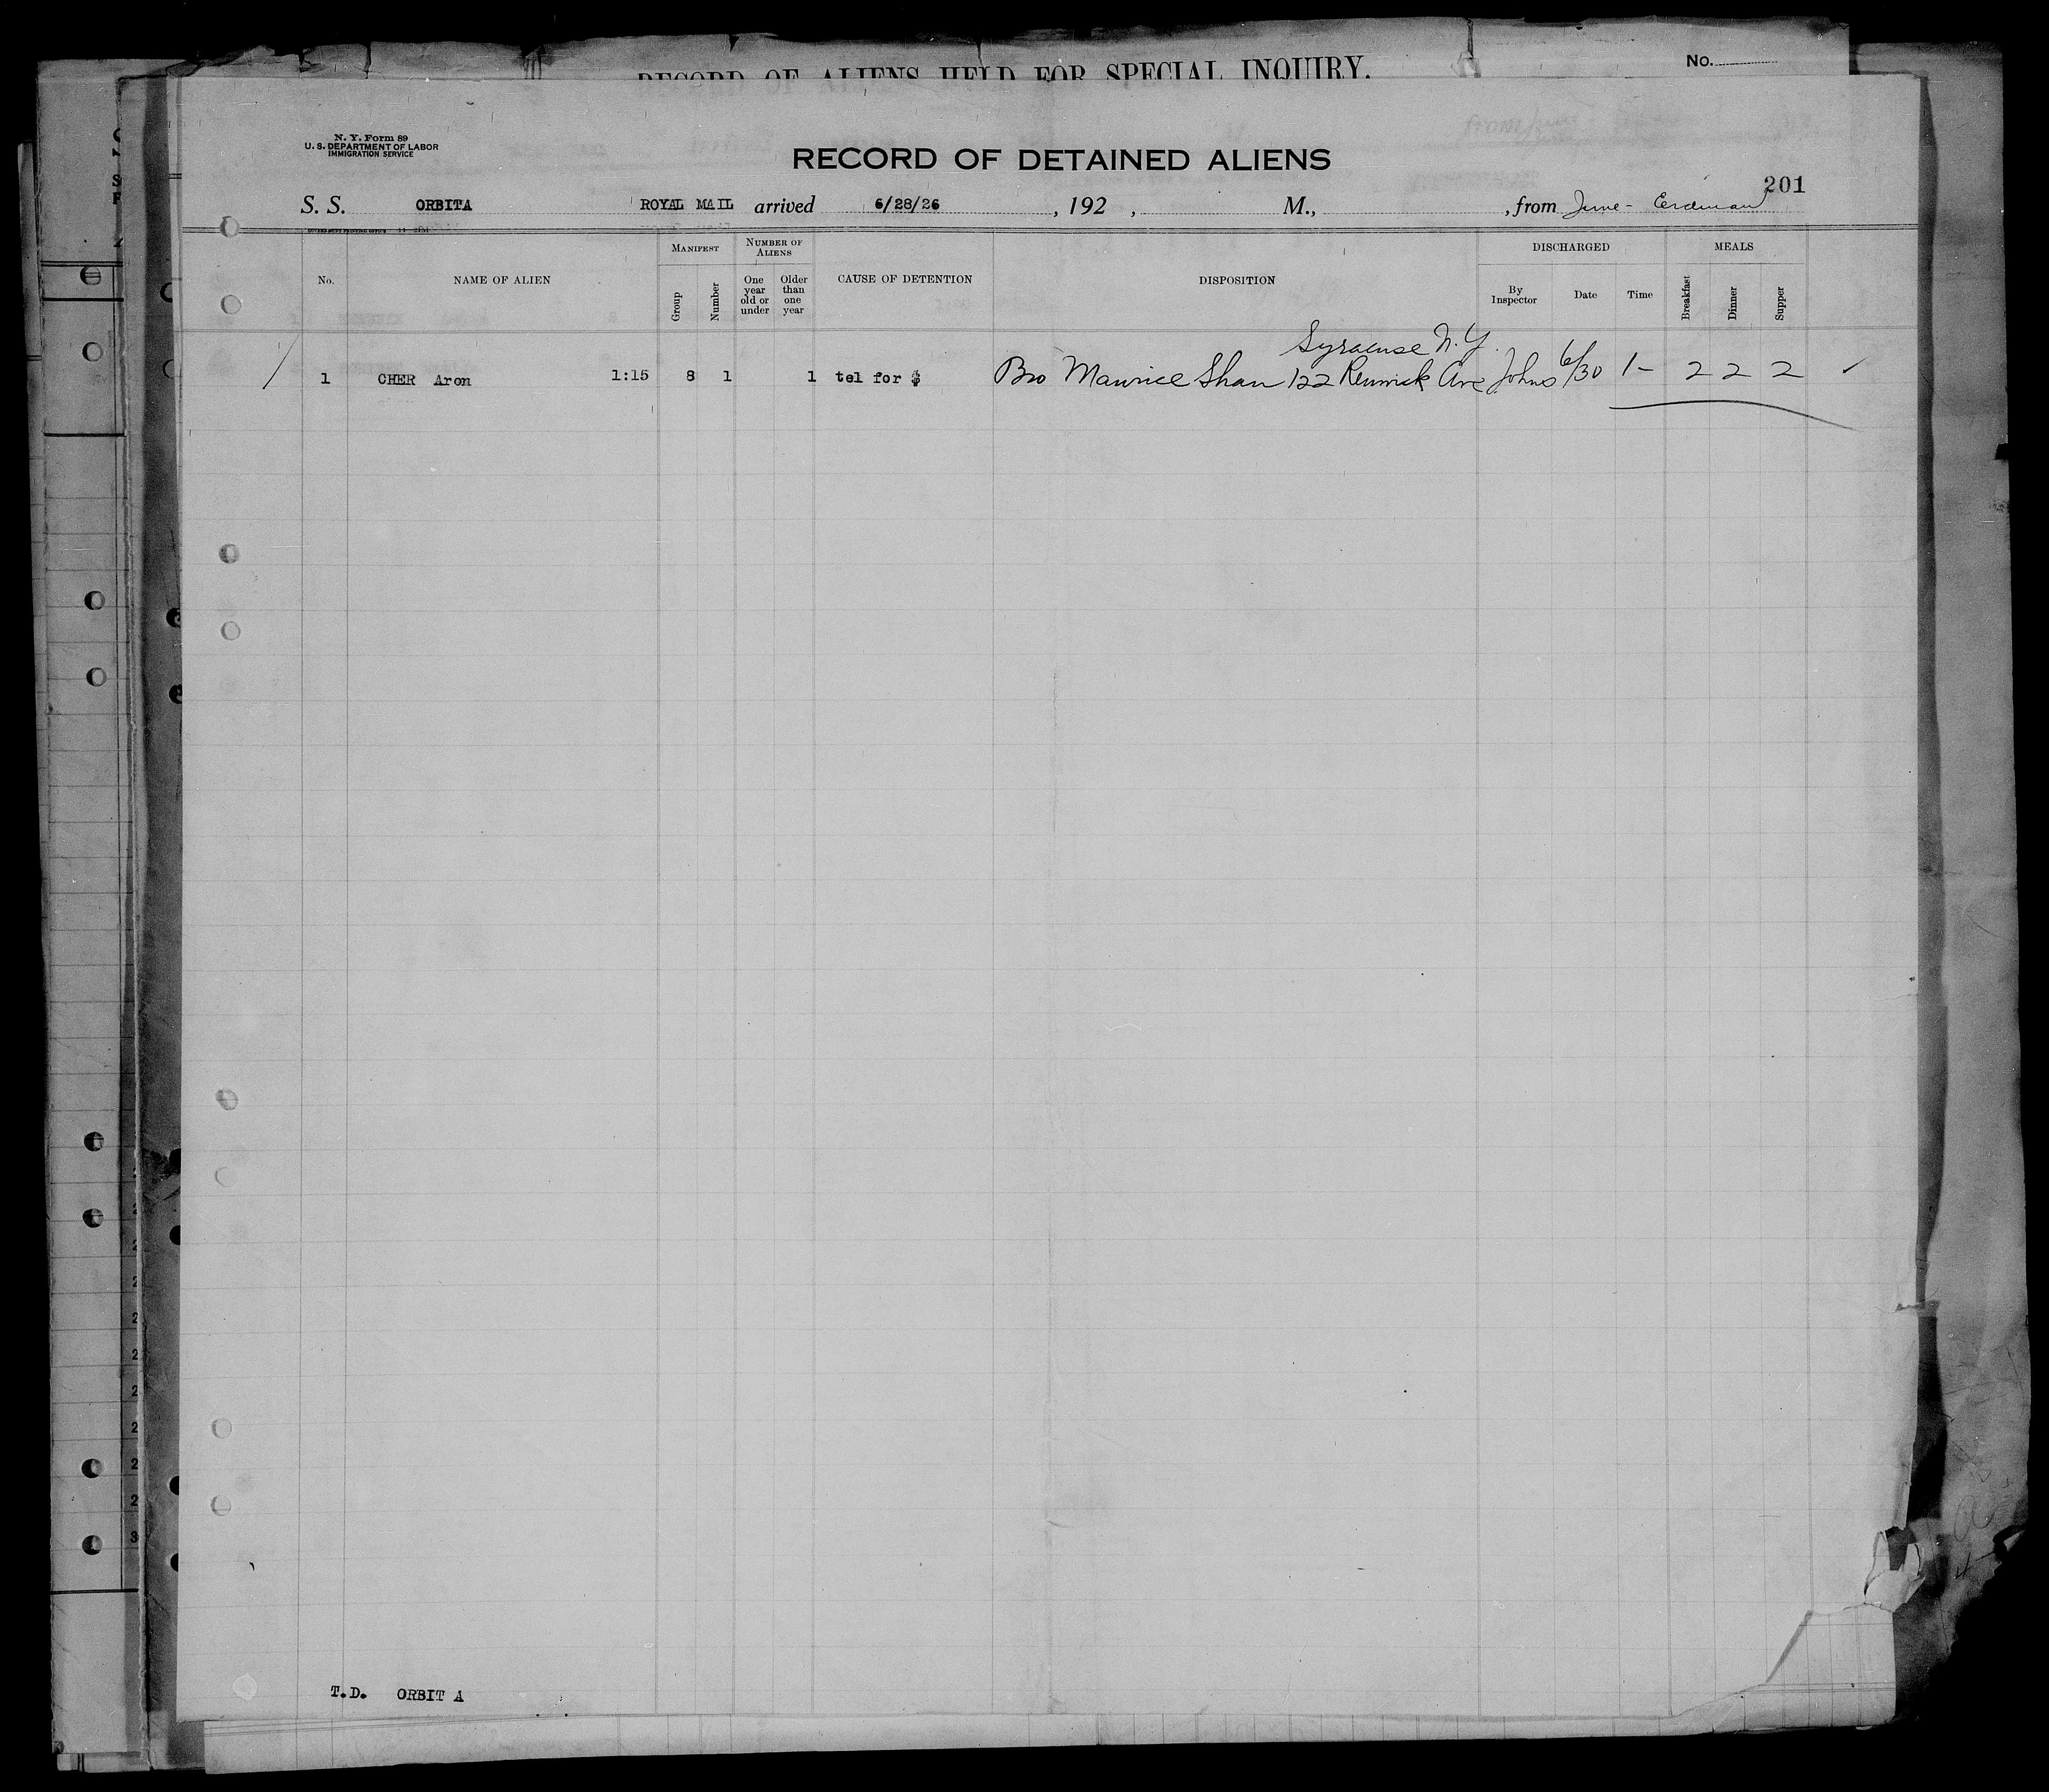 RECORD OF ALIENS HELD FOR SPECIAL INQUIRY.
No.
N. Y. Form 89
U. S. DEPARTMENT OF LABOR
IMMIGRATION SERVICE
RECORD OF DETAINED ALIENS
201
S. S. ORBITA ROYAL MAIL arrived 6/28/26, 192 , M., , from June - Erdman
GOVERNMENT PRINTING OFFICE
No. NAME OF ALIEN MANIFEST NUMBER OF ALIENS CAUSE OF DETENTION DISPOSITION DISCHARGED MEALS
Group Number One year old or under Older than one year By Inspector Date Time Breakfast Dinner Supper
Syracuse N.Y.
1 CHER Aron 1:15 8 1 1 tel for $ Bro Maurice Shan 122 Renwick Ave Johns 6/30 1- 2 2 2 ✓
T.D. ORBIT A